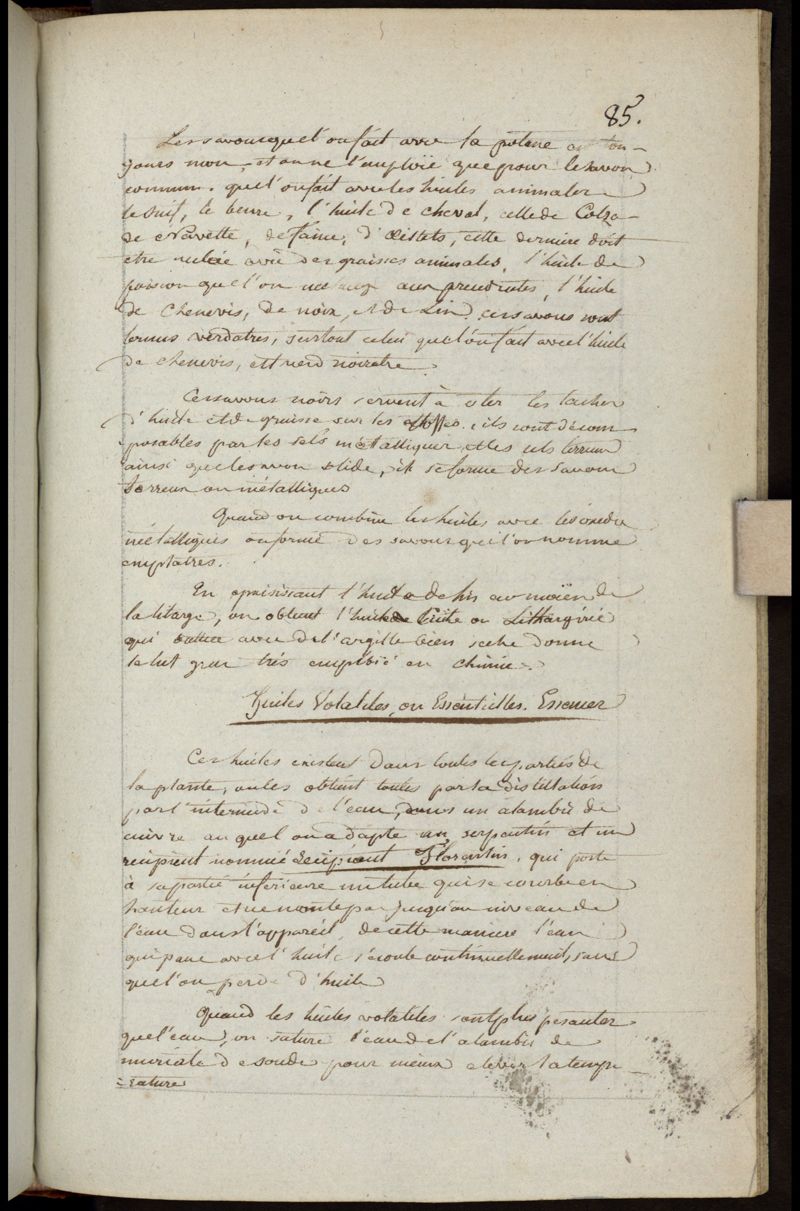 85.
Les savons que l'on fait avec la potasse est tou-
jours mou, et on ne l'emploïe que pour le savon
commun. que l'on fait avec les huiles animales
le suif, le beure, l'huile de cheval, celle de Colza
de Navette, de faine, d'œillets, cette derniere doit
etre melée avec des graisses animales, l'huile de
poisson que l'on aux precedentes, l'huile
de chenevis, de noix, et de Lin. ces savons sont
bruns verdatres, surtout celui que l'on fait avec l'huile
de chenevis, est verd noiratre.
Ces savons noirs servent à oter les taches
d'huile et de graisse sur les étoffes. ils sont décom
posables par les sels métalliques et les sels terreux
ainsi que le savon solide, il se forme des savons
terreux ou métalliques
Quand on combine les huiles avec les oxides
métalliques on forme des savons que l'on nomme
emplatres.
En epaississant l'huile de lin au moïen de
la litarge, on obtient l'huile cuite ou Lithargirié
qui battue avec de l'argille bien seche donne
le lut gras très emploïé en chimie.
Huiles Volatiles, ou Essentielles. Essences
Ces huiles existent dans toutes les parties de
la plante, on les obtient toutes par la distillation
par l'intermede de l'eau, dans un alambic de
cuivre au quel on adapte un serpentin et un
recipient nommé Recipient Florentin, qui porte
à sa partie inferieure un tube qui se courbe en
hauteur et ne monte pas jusqu'au niveau de
l'eau dans l'appareil, de cette maniere l'eau
qui passe avec l'huile s'écoule continuellement, sans
que l'on perde d'huile
Quand les huiles volatiles sont plus pesantes
que l'eau, on sature l'eau de l'alambic de
muriate de soude pour mieux elever la tempe
=rature